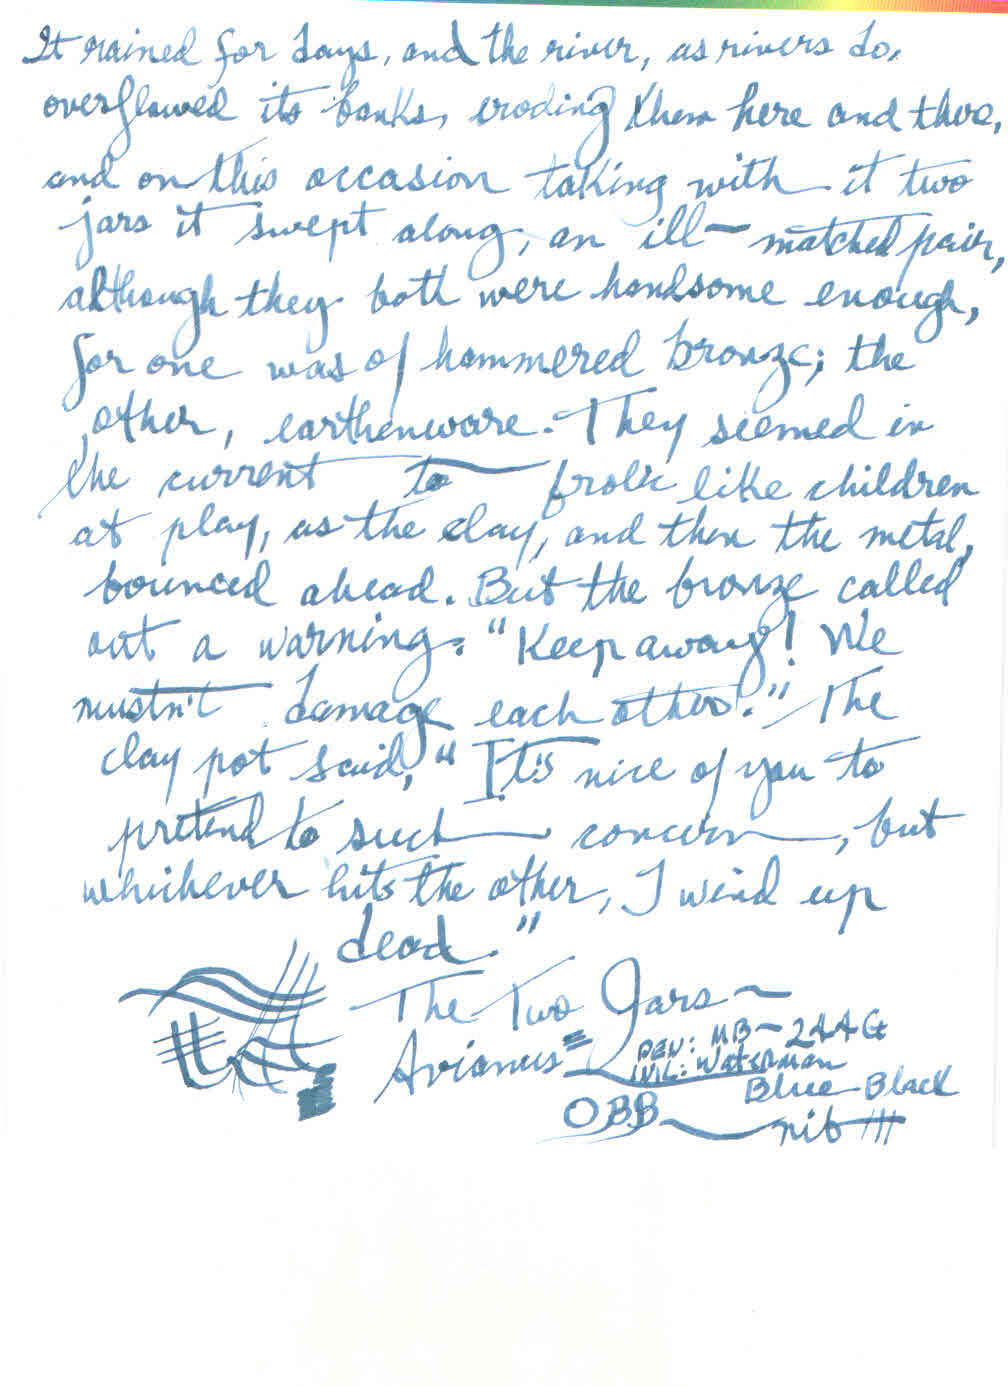 It rained for days, and the river, as rivers do,
overflowed its banks, eroding them here and there,
and on this occasion taking with it two
jars it swept along, an ill-matched pair,
although they both were handsome enough,
for one was of hammered bronze; the
other, earthenware. They seemed in
the current to frolic like children
at play, as the clay, and then the metal,
bounced ahead. But the bronze called
out a warning: "Keep away! We
mustn't damage each other." The
clay pot said, "It's nice of you to
pretend to such concern, but
whichever hits the other, I wind up
dead."
The Two Jars ~
Avianus
PEN: MB - 244 G
INK: Waterman
Blue-Black
OBB nib